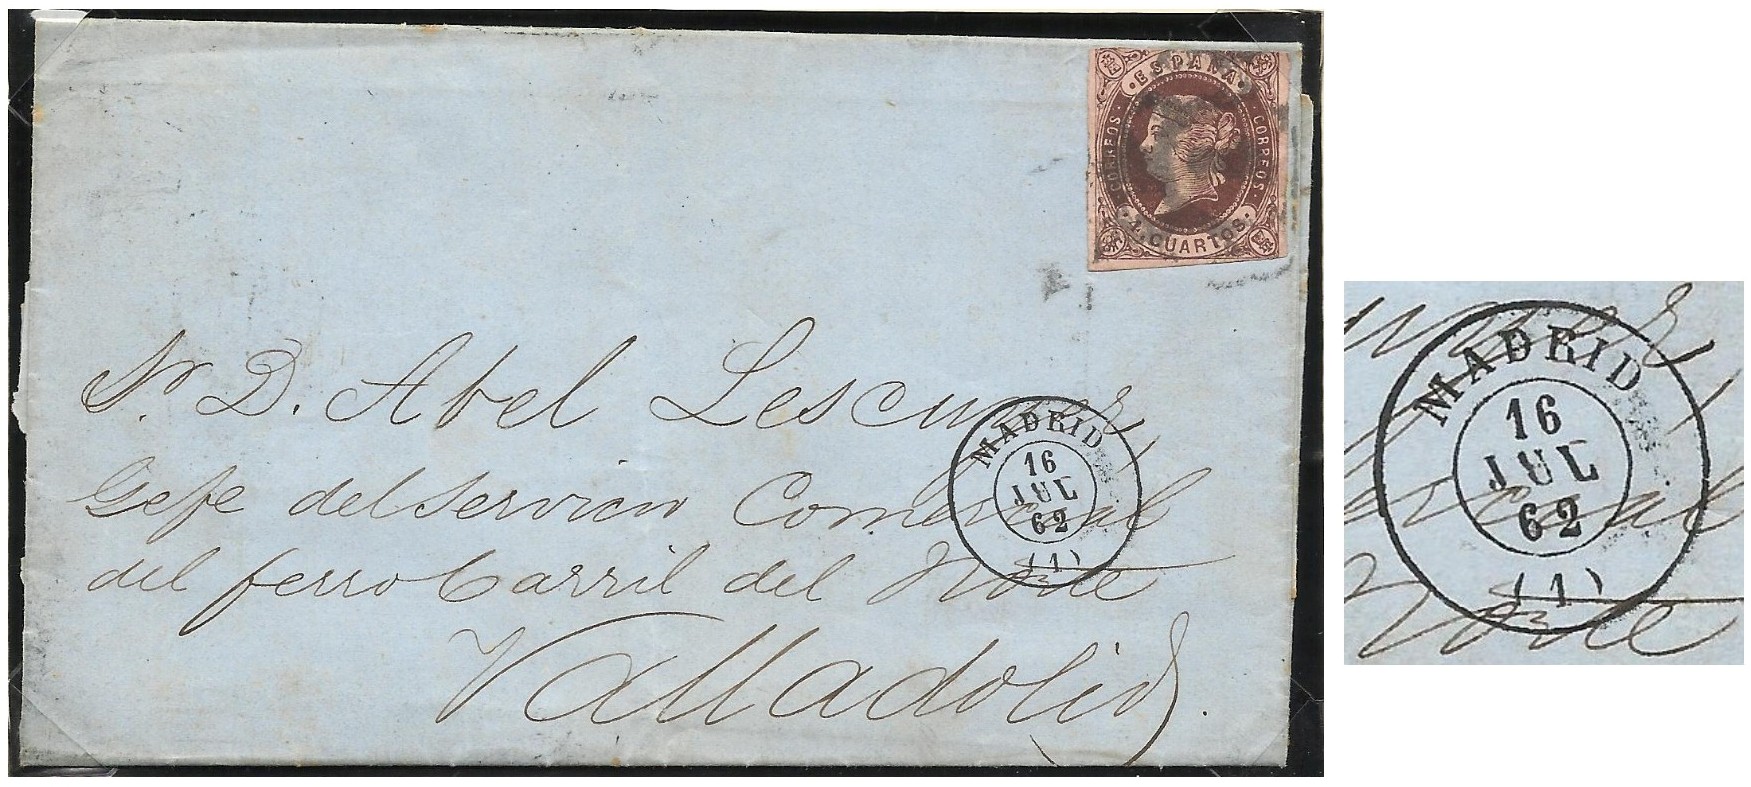 ESPAÑA
CORREOS
CORREOS
4 CUARTOS
Sr. D. Abel
Gefe del servicio Comercial
del ferro Carril del Norte
Valladolid.
MADRID
16
JUL
62
(1)
MADRID
16
JUL
62
(1)
ercial
Norte